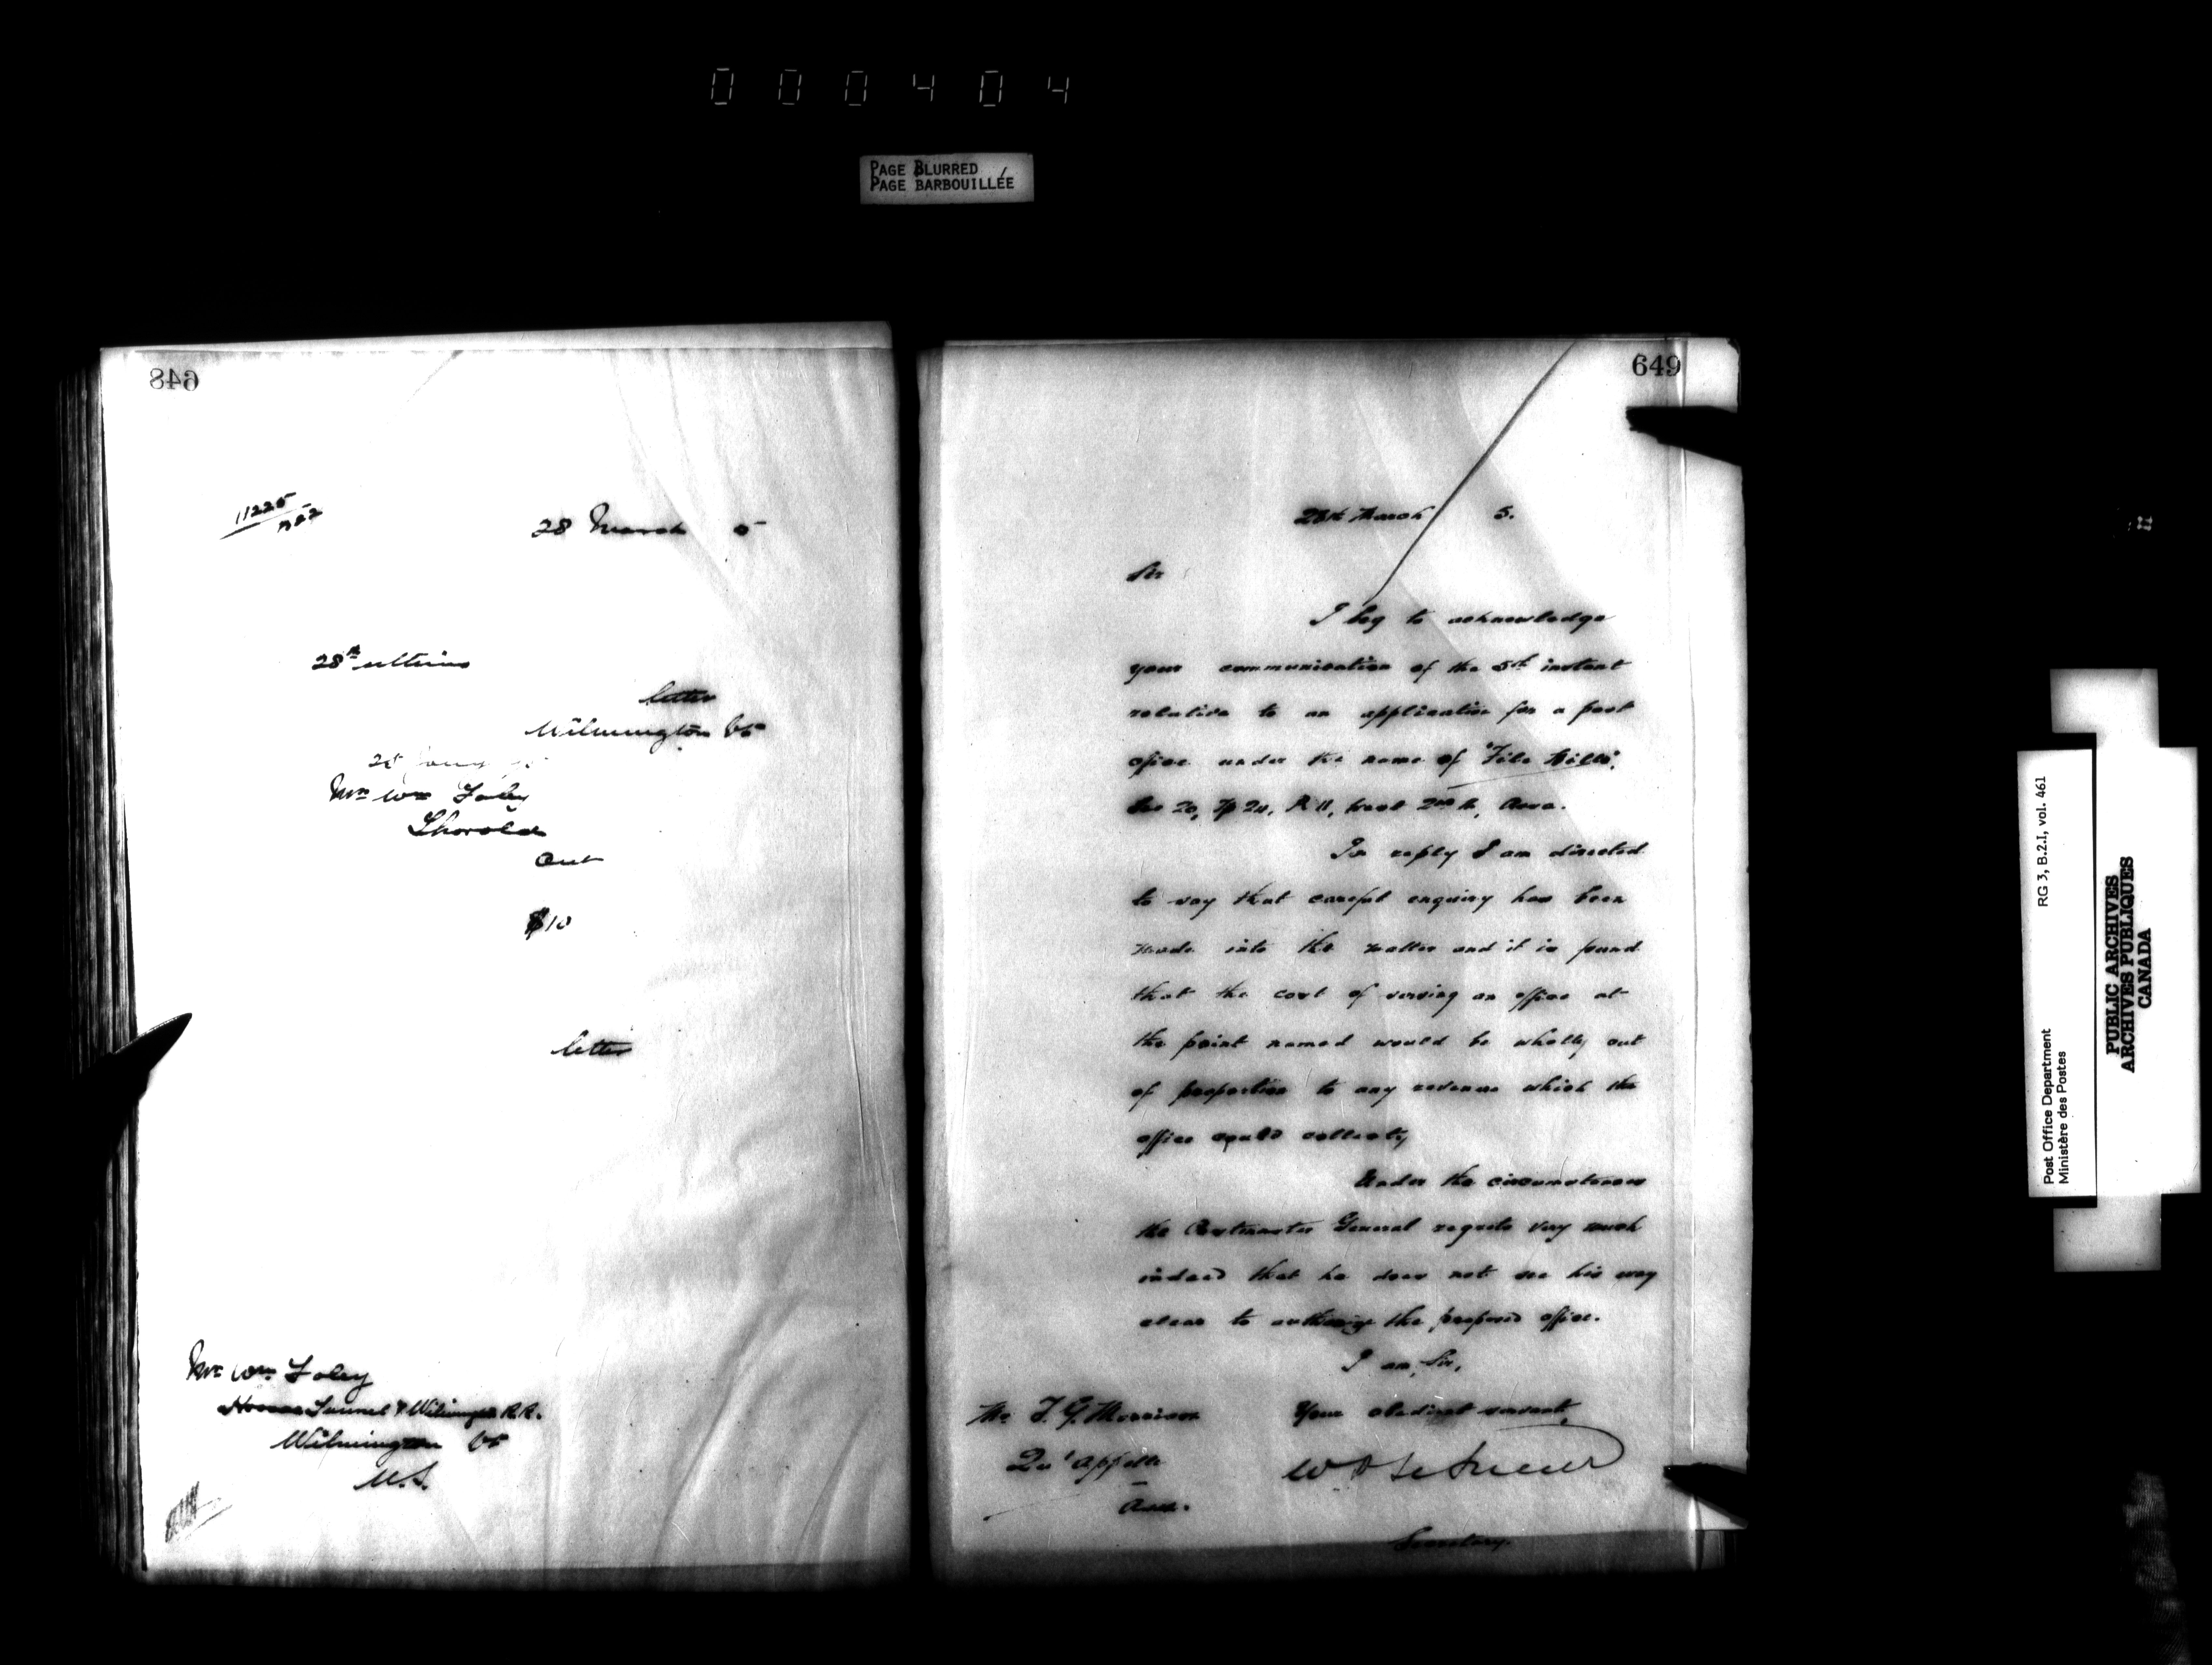 000404
PAGE BLURRED
PAGE BARBOUILLÉE
648
11225
28 March 5
28th ultimo
letter
Wilmington Vt
Mr Wm Foley
Thorold
Ont
$10
letter
Mr Wm Foley
Hoosac Tunnel & Wilmington R.R.
Wilmington Vt
U.S.
649
28th March 5.
Sir
I beg to acknowledge
your communication of the 5th instant
relative to an application for a post
office under the name of "File Hills",
Sec 20, Tp 24, R 11, west 2nd M, Assa.
In reply I am directed
to say that careful enquiry has been
made into the matter and it is found
that the cost of serving an office at
the point named would be wholly out
of proportion to any revenue which the
office could collect
Under the circumstances
the Postmaster General regrets very much
indeed that he does not see his way
clear to authorize the proposed office.
I am, Sir,
Your obedient servant,
Mr T. G. Morrison
Qu'Appelle
Assa.
Secretary.
Post Office Department
Ministère des Postes
RG 3, B.2.I, vol. 461
PUBLIC ARCHIVES
ARCHIVES PUBLIQUES
CANADA